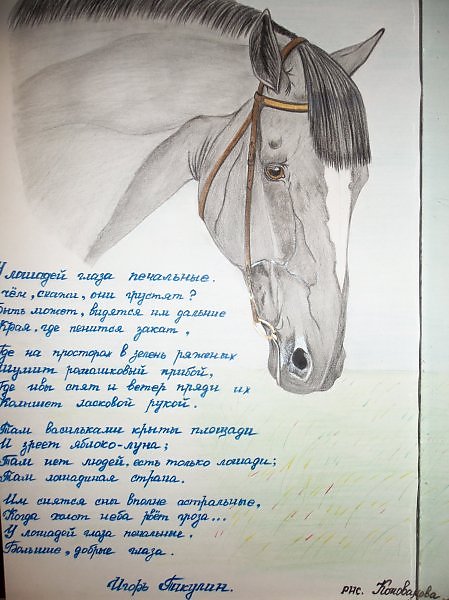 У лошадей глаза печальные.
чём, скажи, они грустят?
быть может, видятся им дальние
Края, где пенится закат,
Где на просторах в зелень ряженых
Шумит ромашковый прибой,
Где ивы спят и ветер пряди их
Колышет ласковой рукой.
Там васильками крыты площади
И зреет яблоко-луна;
Там нет людей, есть только лошади;
Там лошадиная страна.
Им снятся сны вполне астральные,
Когда холст неба рвёт гроза...
У лошадей глаза печальные.
Большие, добрые глаза.
Игорь Тикулин.
рис. Коновалова